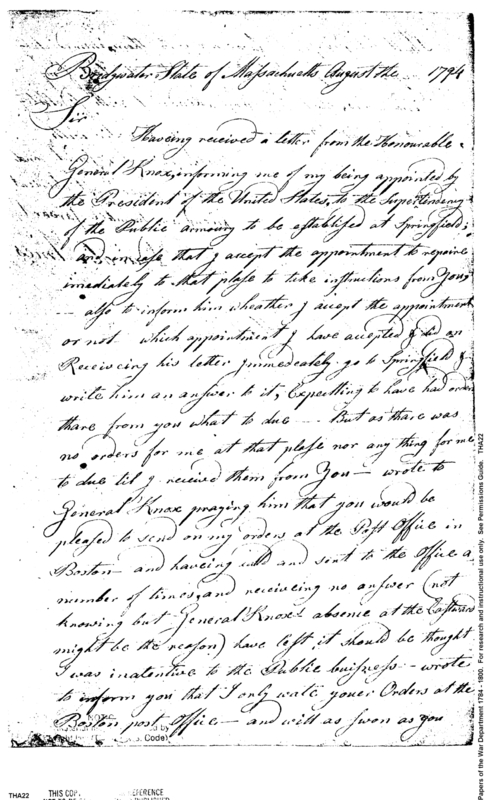 Bridgwater State of Massachusetts August the 1794
Sir
Haveing received a letter from the Honourable
General Knox, informing me of my being appointed by
the President of the United States, to the Superteensy
of the Public armoury to be establised at Springfield,
and in case that I accept the appointment to repaire
imediately to that plase to take instructions from You,
— also to inform him wheather I acept the appointment
or not which appointment I have accepted & did on
Receiveing his letter Immedeately go to Springfield &
write him an answer to it, Expectting to have had orders
thare from you what to due — But as thare was
no orders for me at that plase nor any thing for me
to due til I received them from You — wrote to
General Knox praying him that you would be
pleased to send on my orders at the Post Office in
Boston — and haveing and sent to the Office a
number of times, and receiveing no answer (not
knowing but General Knox's absense at the Eastward
might be the reason) have lest it should be thought
I was inatentive to the Public buisness — wrote
to inform you that I only wate youer Orders at the
Boston post Office — and will as soon as you
Code)
THA22
THIS REFERENCE
Papers of the War Department 1784 - 1800. For research and instructional use only. See Permissions Guide. THA22